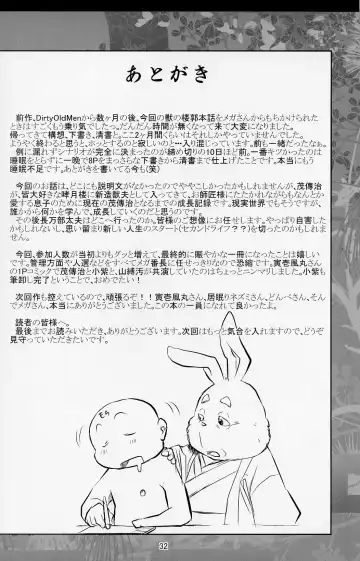 あとがき
前作、DirtyOldMenから数ヶ月の後、今回の獣の楼郭本話をメガさんからもちかけられた
ときはすごくもう乗り気でした…だんだん時間が無くなって来て大変になりました。
帰ってきて構想、下書き、清書と。ここ2ヶ月間くらいはそれしかやっていませんでした。
ようやく終わると思うと、ホッとするのと寂しいのと…入り混じっています。前も一緒だったなぁ。
例に漏れずシナリオが完全に決まったのが締め切りの10日ほど前。一番キツかったのは
睡眠をとらずに一晩で8Pをまっさらな下書きから清書まで仕上げたことです。本当にもう
睡眠不足です。あとがきを書いてる今も(笑)
今回のお話は、どこにも説明文がなかったのでややこしかったかもしれませんが、茂傳治
が、皆大好きな睦月楼に新造獣夫として入ってきて、お師匠様にたたかれながらもなんとか
愛する息子のために現在の茂傳治となるまでの成長記録です。現実世界でもそうですが、
誰かから何かを学んで、成長していくのだと思うのです。
その後長万部丈夫はどこへ行ったのか。皆様のご想像にお任せします。やっぱり自害した
かもしれないし、思い留まり新しい人生のスタート(セカンドライフ??)を切ったのかもしれ
ません。
今回、参加人数が当初よりもグッと増えて、最終的に賑やかな一冊になったことは嬉しい
です。管理方面や人選などをすべてメガ番長に任せっきりなので恐縮です。寅壱風丸さん
の1Pコミックで茂傳治と小紫と、山縛芳が共演していたのはちょっとニンマリしました。小紫も
筆卸し完了ということで、おめでたい!
次回作も控えているので、頑張るぞ!!寅壱風丸さん、居眠りネズミさん、どんべさん、そん
でメガさん、本当にありがとうございました。この本の一員になれて良かったよ。
読者の皆様へ。
最後までお読みいただき、ありがとうございます。次回はもっと気合を入れますで、どうぞ
見守っていただきたいです。
32